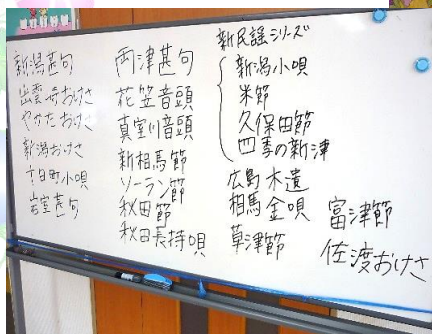 新潟甚句
出雲崎おけさ
やかたおけさ
新潟おけさ
十日町小唄
岩室甚句
両津甚句
花笠音頭
真室川音頭
新相馬節
ソーラン節
秋田節
秋田長持唄
新民謡シリーズ
新潟小唄
米節
久保田節
四季の新津
広島木遣
相馬金唄
草津節
富津節
佐渡おけさ